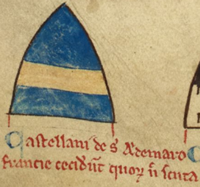 Castellani de sc̄o Ademaro
francie cecidūt quoꝝ n̄ scuta